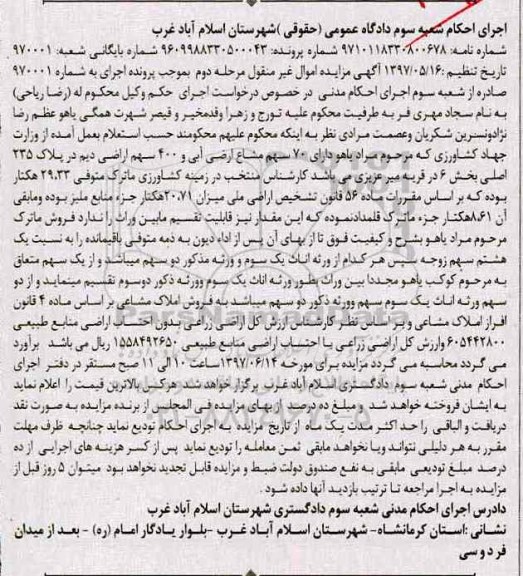 اجرای احکام شعبه سوم دادگاه عمومی (حقوقی) شهرستان اسلام آباد غرب
شماره نامه: ۹۷۱۰۱۱۸۳۳۰۸۰۰۶۷۸ شماره پرونده: ۹۶۰۹۹۸۸۳۳۰۵۰۰۰۴۳ شماره بایگانی شعبه: ۹۷۰۰۰۱
تاریخ تنظیم: ۱۳۹۷/۰۵/۱۶ آگهی مزایده اموال غیر منقول مرحله دوم بموجب پرونده اجرای به شماره ۹۷۰۰۰۱
صادره از شعبه سوم اجرای احکام مدنی در خصوص درخواست اجرای حکم وکیل محکوم له (رضا ریاحی)
به نام سجاد مهری فر به طرفیت محکوم علیه تورج و زهرا وفدمخیر و قیصر شهرت همگی یاهو عظم رضا
نژادونسرین شکریان وعصمت مرادی نظر به اینکه محکوم علیهم محکومند حسب استعلام بعمل آمده از وزارت
جهاد کشاورزی که مرحوم مراد یاهو دارای ۷۰ سهم مشاع اراضی آبی و ۴۰۰ سهم اراضی دیم در پلاک ۲۳۵
اصلی بخش ۶ در قریه میر عزیزی می باشد کارشناس منتخب در زمینه کشاورزی ماترک متوفی ۲۹.۳۳ هکتار
بوده که بر اساس مقررات ماده ۵۶ قانون تشخیص اراضی ملی میزان ۲۰.۷۱هکتار جزء منابع ملیز بوده ومابقی
آن ۸.۶۱هکتار جزء ماترک قلمدادنموده که این مقدار نیز قابلیت تقسیم مابین وراث را ندارد فروش ماترک
مرحوم مراد یاهو بشرح و کیفیت فوق تا از بهای آن پس از اداء دیون به ذمه متوفی باقیمانده را به نسبت یک
هشتم سهم زوجه سپس هر کدام از ورثه اناث یک سوم و ورثه مذکور دو سهم میباشد و از یک سهم متعاق
به مرحوم کوکب یاهو مجددا بین وراث بطور ورثه اناث یک سوم وورثه ذکور دوسوم تقسیم مینماید و از دو
سهم ورثه اناث یک سوم سهم وورثه ذکور دو سهم میباشد به فروش املاک مشاعی بر اساس ماده ۴ قانون
افراز املاک مشاعی و بر اساس نظر کارشناس ارزش کل اراضی زراعی بدون احتساب اراضی منابع طبیعی
۶۰۵۴۴۲۸۰۰ وارزش کل اراضی زراعی با احتساب اراضی منابع طبیعی ۱۵۵۸۴۹۲۶۵۰ ریال می باشد برآورد
می گردد محاسبه می گردد مزایده برای مورخه ۱۳۹۷/۰۶/۱۴ساعت ۱۰ الی ۱۱ صبح مستقر در دفتر اجرای
احکام مدنی شعبه سوم دادگستری اسلام آباد غرب برگزار خواهد شد هرکس بالاترین قیمت را اعلام نماید
به ایشان فروخته خواهد شد و مبلغ ده درصد از بهای مزایده فی المجلس از برنده مزایده به صورت نقد
دریافت و الباقی را حد اکثر مدت یک ماه از تاریخ مزایده به اجرای احکام تودیع نماید چنانچه ظرف مهلت
مقرر به هر دلیلی نتواند ویا نخواهد مابقی ثمن معامله را تودیع نماید پس از کسر هزینه های اجرایی از ده
درصد مبلغ تودیعی مابقی به نفع صندوق دولت ضبط و مزایده قابل تجدید نخواهد بود میتوان ۵ روز قبل از
مزایده به اجرا مراجعه تا ترتیب بازدید آنها داده شود.
دادرس اجرای احکام مدنی شعبه سوم دادگستری شهرستان اسلام آباد غرب
نشانی: استان کرمانشاه- شهرستان اسلام آباد غرب -بلوار یادگار امام (ره) - بعد از میدان
فردوسی